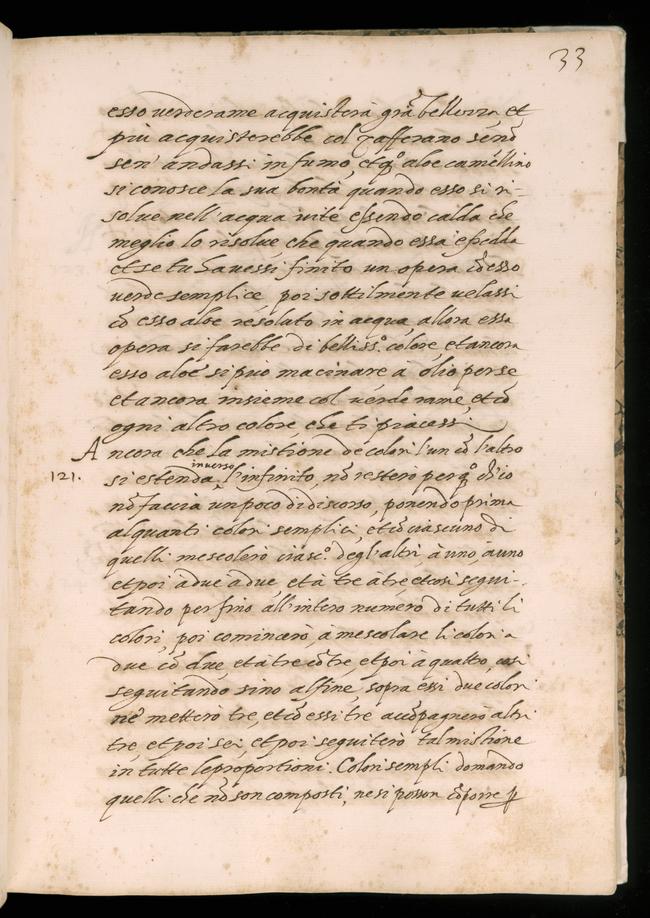 33
esso verderame acquisterà grā bellezza et
più acquisterebbe col zafferano se nō
sen' andassi in fumo, et q̊ aloe camellino
si conosce la sua bontà quando esso si ri-
solve nell'acqua vite essendo calda che
meglio lo risolve, che quando essa è fredda
et se tu havessi finito un opera cō esso
verde semplice, poi sottilmente velassi
cō esso aloe resoluto in acqua allora essa
opera si farebbe di belliss.º colore, et ancora
esso aloe si può macinare à olio per se
et ancora insieme col verde rame, et cō
ogni altro colore che ti piacessi
Ancora che la mistione de colori l'un cō l'altro
121. si estenda inverso l'infinito, nō resterò per q̊ ch'io
nō faccia un poco di discorso, ponendo prima
alquanti colori semplici, et cō ciascuno di
quelli mescolerò ciasc.º degl'altri, à uno, à uno
et poi à due à due, et à tre à tre, et così segui-
tando per fino all'intero numero di tutti li
colori, poi comincerò, à mescolare li colori a
due cō due, et à tre cō tre, et poi à quattro, così
seguitando sino al fine, sopra essi due colori
ne metterò tre, et cō essi tre accōpagnerò altri
tre, et poi sei, et poi seguiterò tal mistione
in tutte le proportioni. Colori sempli domando
quelli che nō son composti, ne si posson cōporre ꝑ